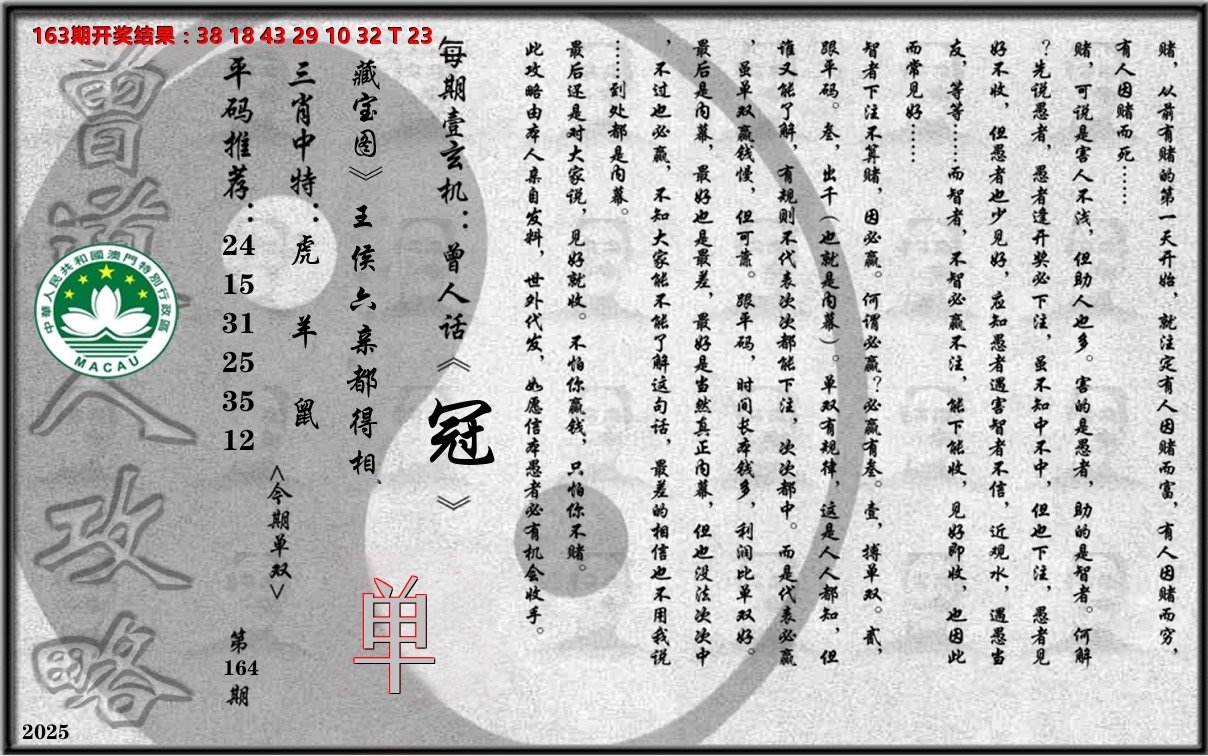 163期开奖结果：38 18 43 29 10 32 T 23
赌，从前有赌的第一天开始，就注定有人因赌而富，有人因赌而穷，
有人因赌而死……
赌，可说是害人不浅，但助人也多。害的是愚者，助的是智者。何解
？先说愚者，愚者逢开奖必下注，虽不知中不中，但也下注，愚者见
好不收，但愚者也少见好，应知愚者遇害智者不信，近观水，遇愚当
友，等等……而智者，不智必赢不注，能下能收，见好即收，也因此
而常见好……
智者下注不算赌，因必赢。何谓必赢？必赢有叁。壹，搏单双。贰，
跟平码。叁，出千（也就是内幕）。单双有规律，这是人人都知，但
谁又能了解，有规则不代表次次都能下注，次次都中。而是代表必赢
，虽单双赢钱慢，但可靠。跟平码，时间长本钱多，利润比单双好。
最后是内幕，最好也是最差，最好是当然真正内幕，但也没法次次中
，不过也必赢，不知大家能不能了解这句话，最差的相信也不用我说
……到处都是内幕。
最后还是对大家说，见好就收。不怕你赢钱，只怕你不赌。
此攻略由本人亲自发料，世外代发，如愿信本愚者必有机会收手。
每期壹玄机：曾人话《冠》
藏宝图》王侯六亲都得相、
三肖中特：虎 羊 鼠
<今期单双>
单
平码推荐：24 15 31 25 35 12
第164期
曾道人攻略
中華人民共和國澳門特別行政區
MACAU
2025